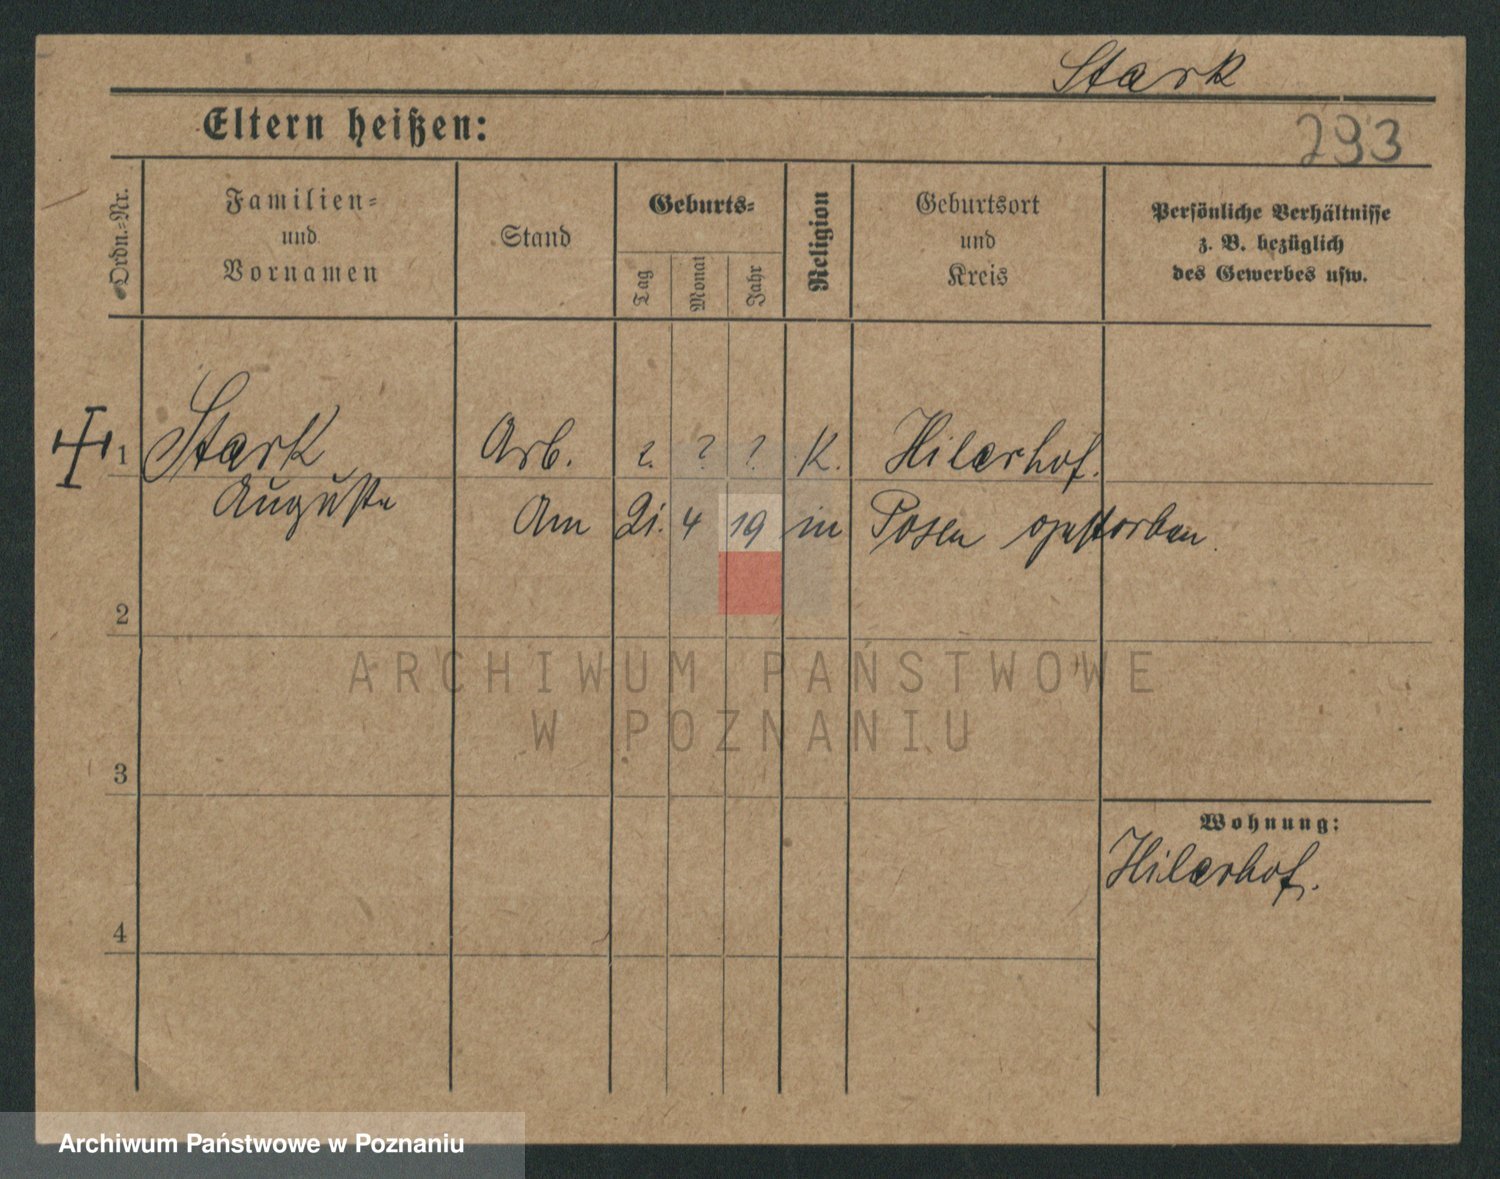 Stark
Eltern heißen:
293
Ordn.-Nr.
Familien-
und
Vornamen
Stand
Geburts-
Tag
Monat
Jahr
Religion
Geburtsort
und
Kreis
Persönliche Verhältnisse
z. B. bezüglich
des Gewerbes usw.
1 Stark Arb. ? ? ? K. Hilarhof.
Auguste
Am 21. 4 19 in Posen gestorben.
2
ARCHIWUM PAŃSTWOWE
W POZNANIU
3
Wohnung:
Hilarhof.
4
Archiwum Państwowe w Poznaniu